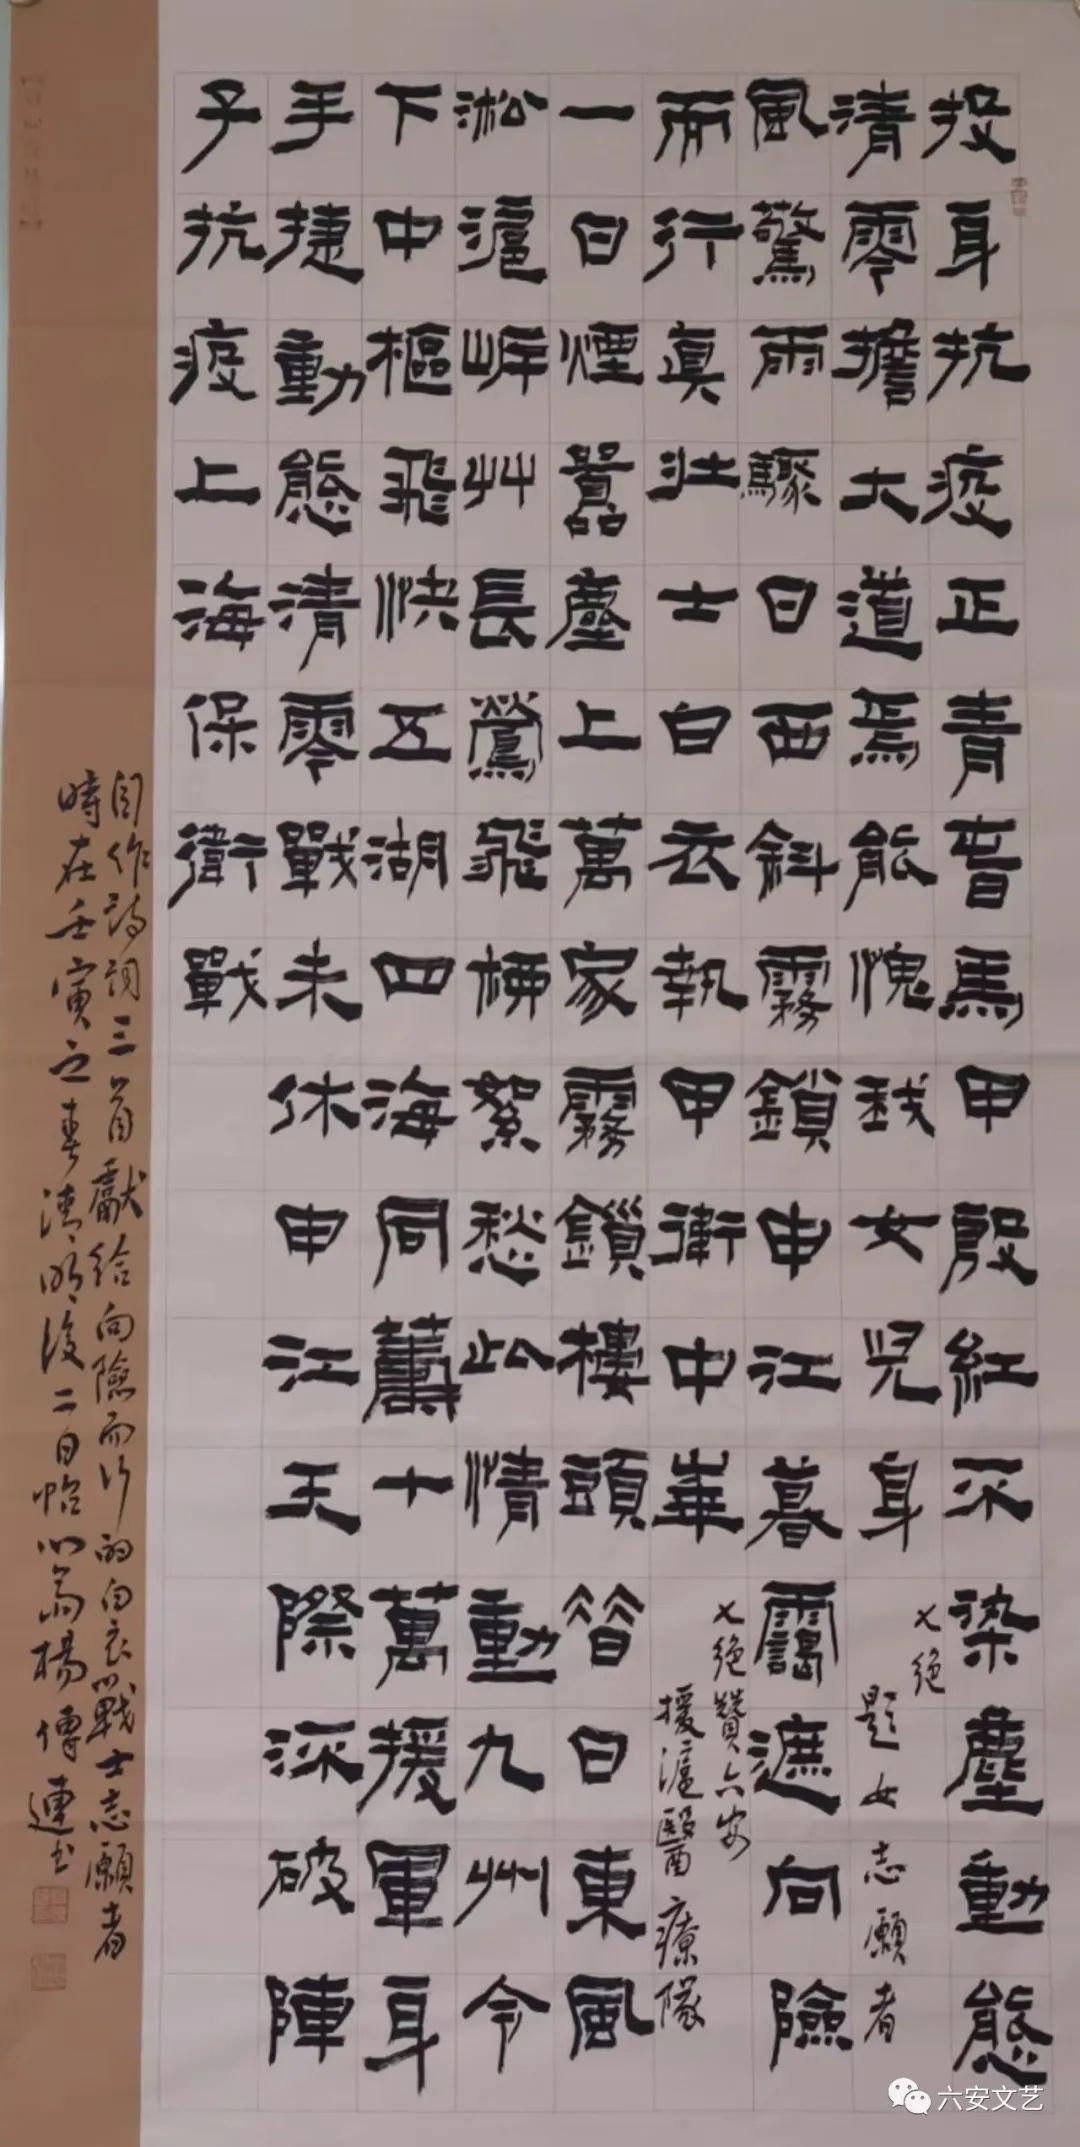 投身抗疫正青春馬甲殷紅不染塵動態
清零擔大道焉能愧我女兒身
七絕
題女志願者
風驚雨驟日西斜霧鎖申江暮靄遮向險
而行真壯士白衣執甲衛中華
七絕贊六安
援滬醫療隊
一日煙囂塵上萬家霧鎖樓頭昔日東風
淞滬岸艸長鶯飛柳絮愁此情動九州令
下中樞飛快五湖四海同籌十萬援軍身
手捷動態清零戰未休申江天際深破陣
子抗疫上海保衛戰
自作詩詞三首獻給向險而行的白衣戰士志願者
時在壬寅之春清明後二日怡心齋楊傳連书
六安文艺